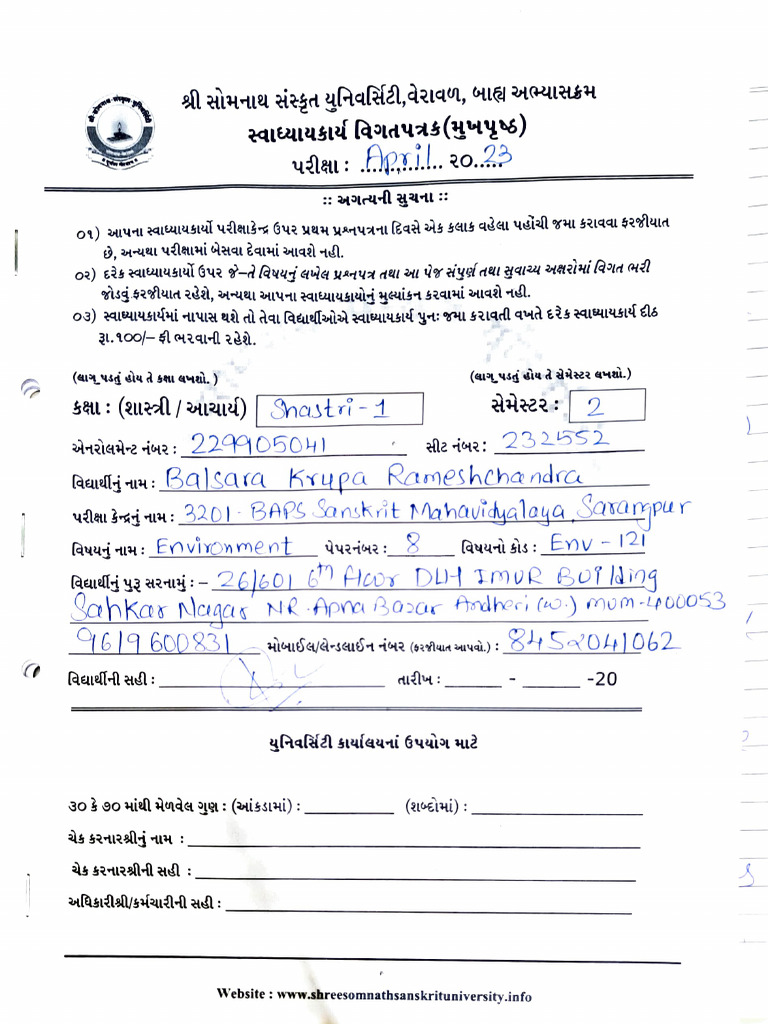 શ્રી સોમનાથ સંસ્કૃત યુનિવર્સિટી,વેરાવળ, બાહ્ય અભ્યાસક્રમ
સ્વાધ્યાયકાર્ય વિગતપત્રક(મુખપૃષ્ઠ)
પરીક્ષા : April ૨૦ 23
:: અગત્યની સુચના ::
૦૧) આપના સ્વાધ્યાયકાર્યો પરીક્ષાકેન્દ્ર ઉપર પ્રથમ પ્રશ્નપત્રના દિવસે એક કલાક વહેલા પહોંચી જમા કરાવવા ફરજીયાત
છે, અન્યથા પરીક્ષામાં બેસવા દેવામાં આવશે નહી.
૦૨) દરેક સ્વાધ્યાયકાર્યો ઉપર જે–તે વિષયનું લખેલ પ્રશ્નપત્ર તથા આ પેજ સંપુર્ણ તથા સુવાચ્ય અક્ષરોમાં વિગત ભરી
જોડવું ફરજીયાત રહેશે, અન્યથા આપના સ્વાધ્યાયકાયોનું મુલ્યાંકન કરવામાં આવશે નહી.
૦૩) સ્વાધ્યાયકાર્યમાં નાપાસ થશે તો તેવા વિદ્યાર્થીઓએ સ્વાધ્યાયકાર્ય પુનઃ જમા કરાવતી વખતે દરેક સ્વાધ્યાયકાર્ય દીઠ
રૂા.૧૦૦/– ફી ભરવાની રહેશે.
(લાગૂ પડતું હોય તે કક્ષા લખશો.) (લાગૂ પડતું હોય તે સેમેસ્ટર લખશો.)
કક્ષા : (શાસ્ત્રી / આચાર્ય) Shastri - 1 સેમેસ્ટર : 2
એનરોલમેન્ટ નંબર : 229905041 સીટ નંબર : 232552
વિદ્યાર્થીનું નામ : Balsara Krupa Rameshchandra
પરીક્ષા કેન્દ્રનું નામ : 3201 - BAPS Sanskrit Mahavidyalaya, Sarangpur
વિષયનું નામ : Environment પેપરનંબર : 8 વિષયનો કોડ : Env - 121
વિદ્યાર્થીનું પુરૂ સરનામું : – 26/601 6th floor DLH IMUR BUilding
Sahkar Nagar NR. Apna Bazar Andheri (w.) mum-400053
9619600831 મોબાઈલ/લેન્ડલાઈન નંબર (ફરજીયાત આપવો.) : 8452041062
વિદ્યાર્થીની સહી : તારીખ : - -20
યુનિવર્સિટી કાર્યાલયનાં ઉપયોગ માટે
૩૦ કે ૭૦ માંથી મેળવેલ ગુણ : (આંકડામાં) : (શબ્દોમાં) :
ચેક કરનારશ્રીનું નામ :
ચેક કરનારશ્રીની સહી :
અધિકારીશ્રી/કર્મચારીની સહી :
Website : www.shreesomnathsanskrituniversity.info